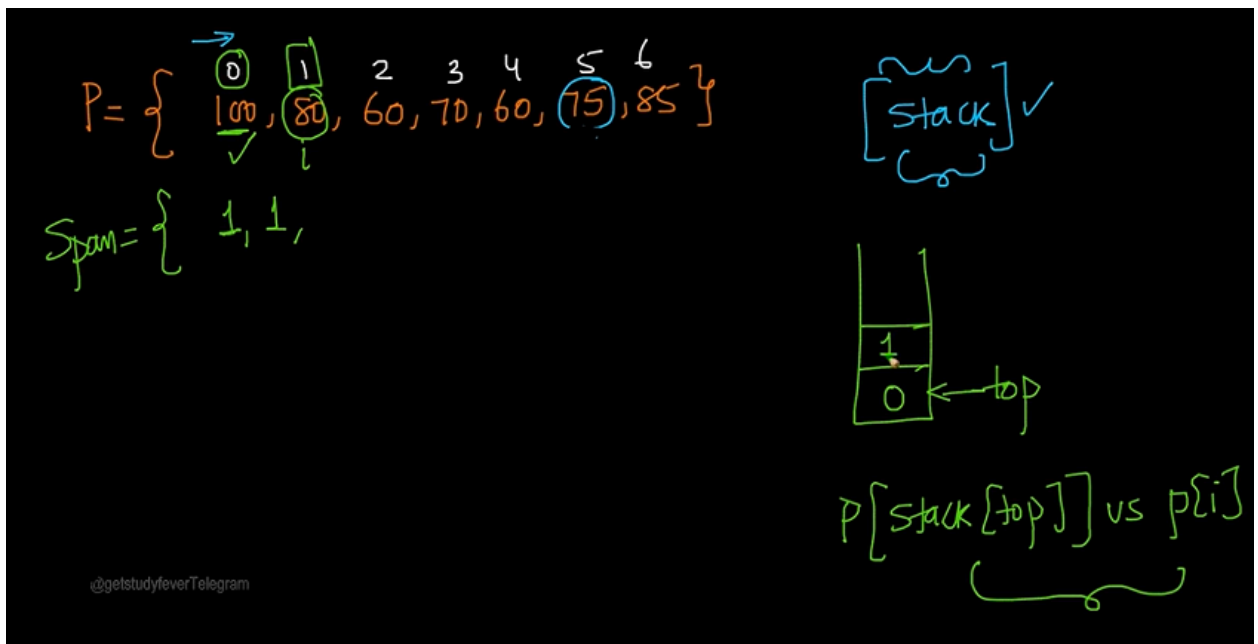 0 1 2 3 4 5 6
P = { 100, 80, 60, 70, 60, 75, 85 }
i
[stack] ✓
Span = { 1, 1,
1
0 ← top
P[stack[top]] vs p[i]
@getstudyfeverTelegram